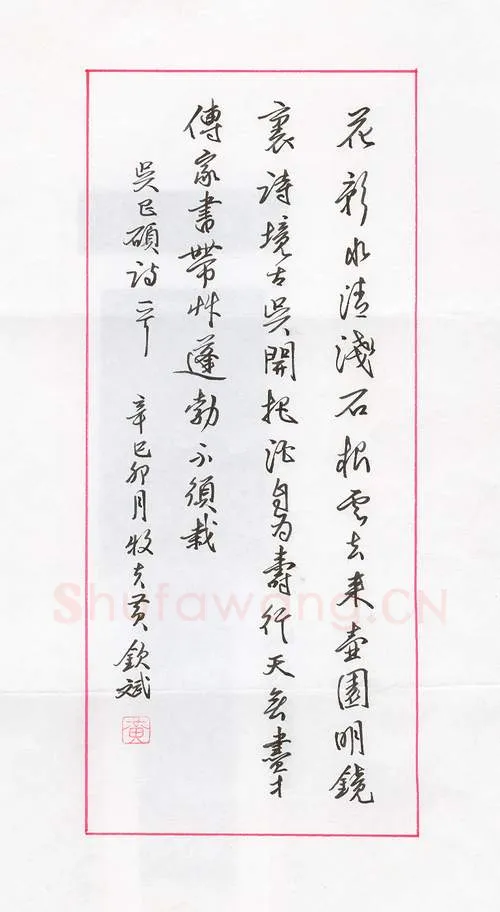 花影水清淺石根雲去來壺園明鏡
裏詩境古吳開把酒自為壽行天無盡才
傳家書帶艸蓬勃不須栽
吳昌碩詩一首 辛巳卯月牧夫黃欽斌
黃
Shufawang.CN